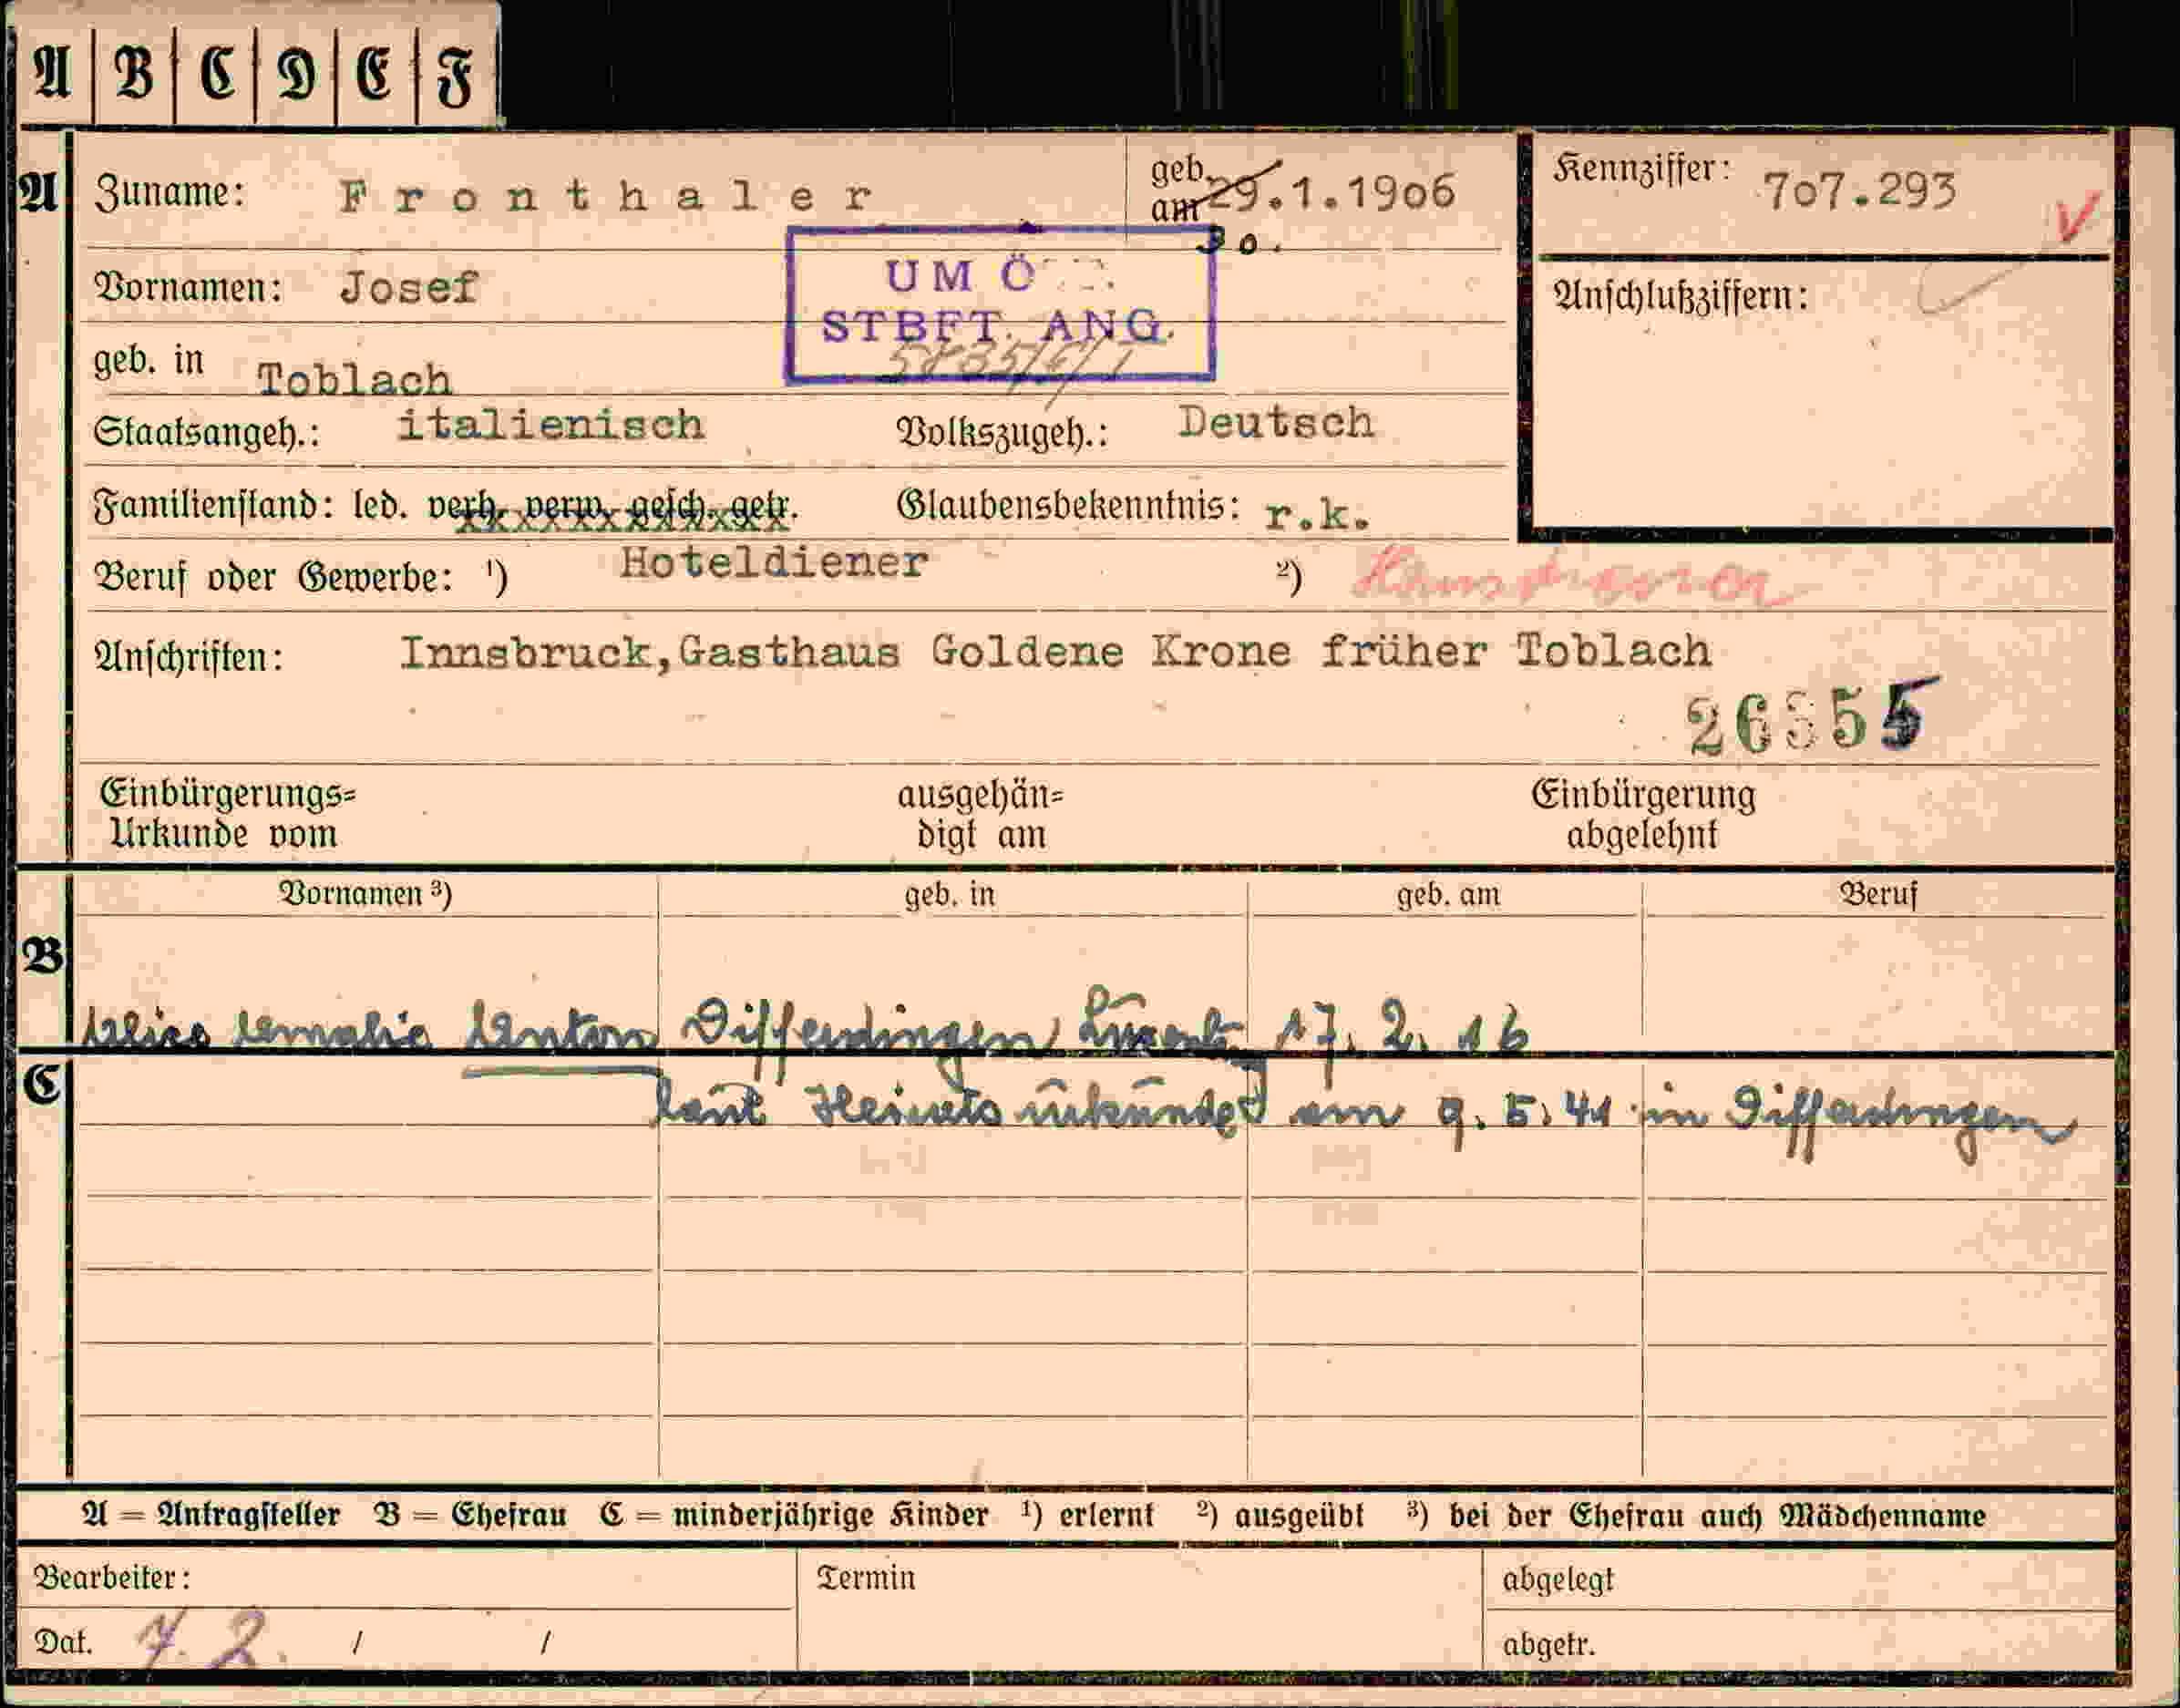 A B C D E F
A Zuname: Fronthaler geb. am 29.1.1906 Kennziffer: 707.293 V
30.
Vornamen: Josef UM Ö Anschlußziffern:
STBFT. ANG.
geb. in Toblach
Staatsangeh.: italienisch Volkszugeh.: Deutsch
Familienstand: led. verh. verw. gesch. getr. Glaubensbekenntnis: r.k.
Beruf oder Gewerbe: ¹) Hoteldiener ²)
Anschriften: Innsbruck, Gasthaus Goldene Krone früher Toblach
26355
Einbürgerungs= ausgehän= Einbürgerung
Urkunde vom digt am abgelehnt
Vornamen ³) geb. in geb. am Beruf
B
Alice Amalie Anton Differdingen 17. 2. 16
C
laut Heiratsurkunde am 9. 5. 41 in Differdingen
A = Antragsteller B = Ehefrau C = minderjährige Kinder ¹) erlernt ²) ausgeübt ³) bei der Ehefrau auch Mädchenname
Bearbeiter: Termin abgelegt
Dat. 7. 2. / / abgetr.